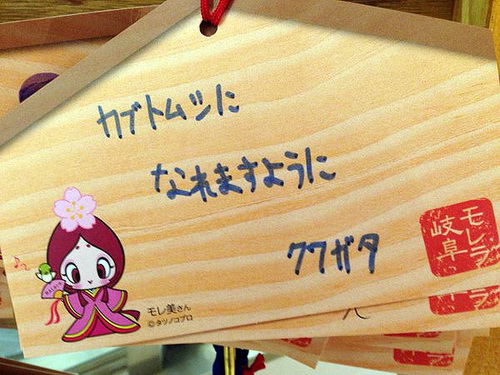 カブトムシに
なれますように
クワガタ
モレラ
岐阜
モレ美さん
©タツノコプロ